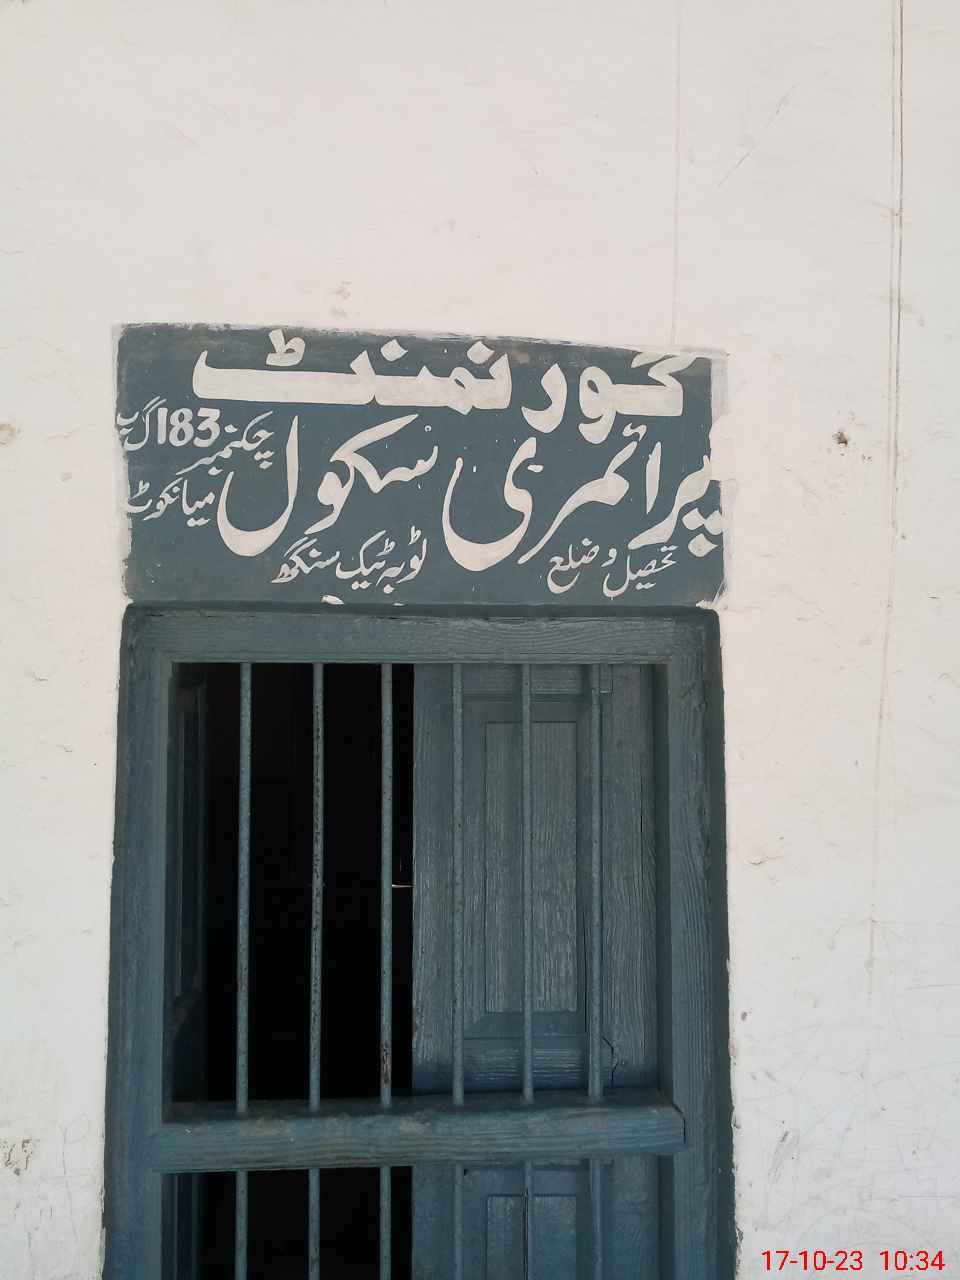 گورنمنٹ
پرائمری سکول
چکنمبر 183 گ ب
میانکوٹ
تحصیل و ضلع ٹوبہ ٹیک سنگھ
17-10-23 10:34